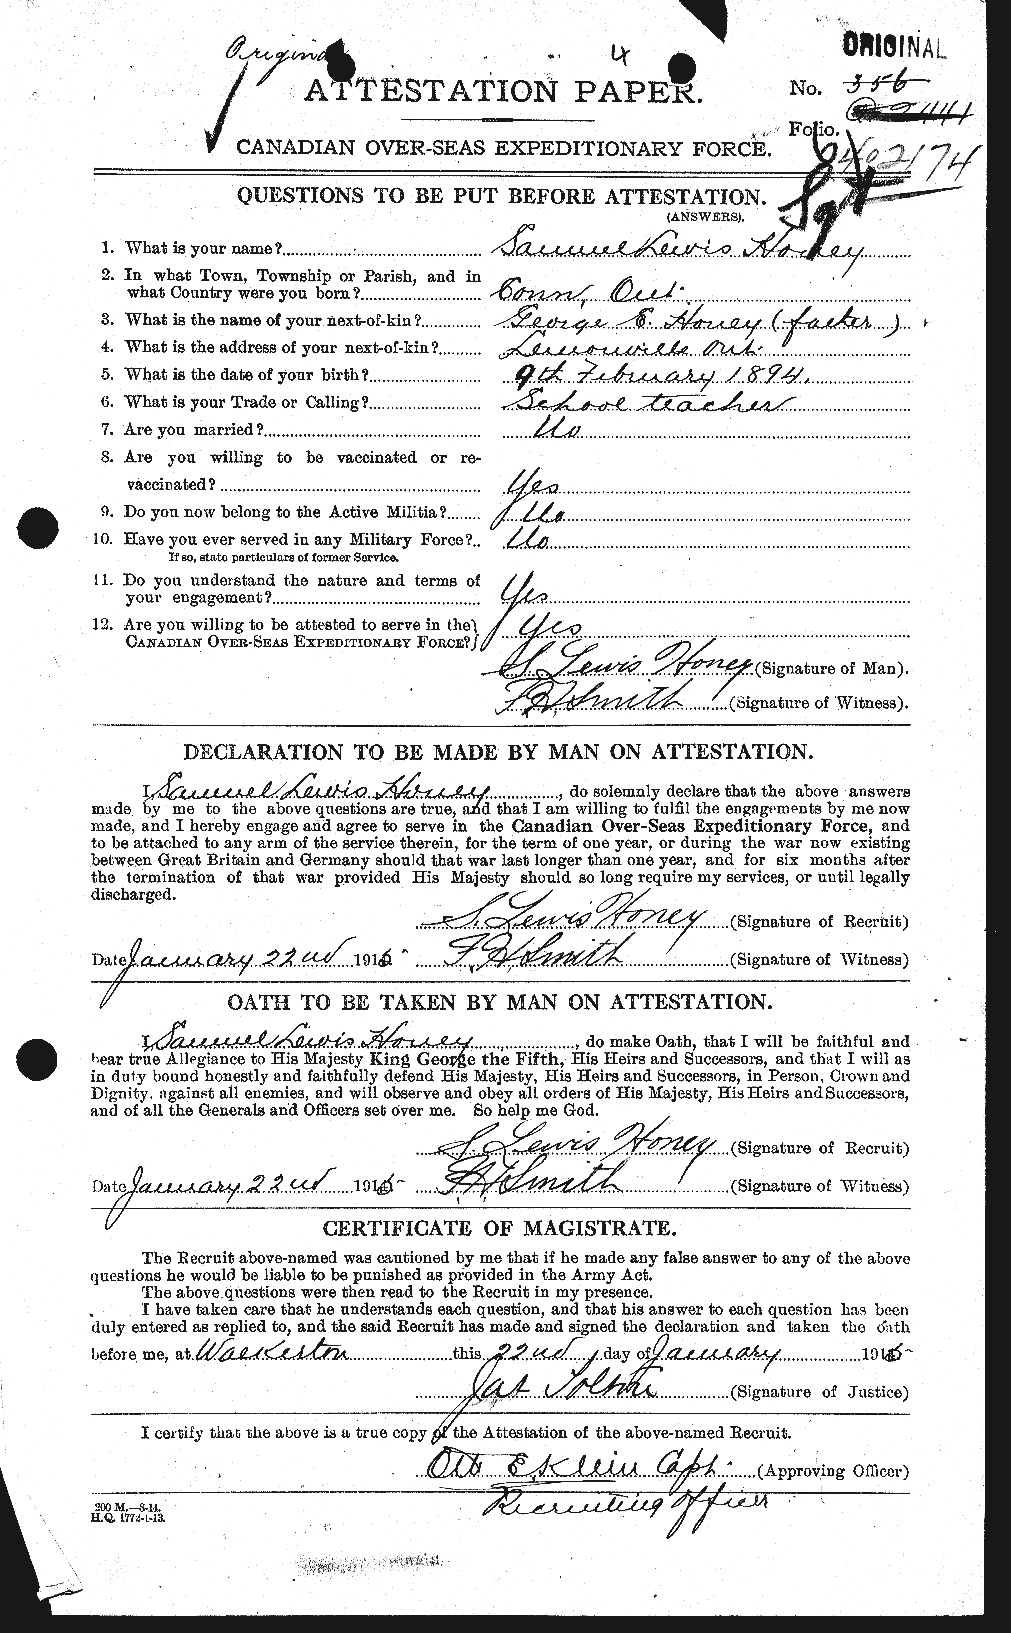 Original 4 ORIGINAL
ATTESTATION PAPER.
No. 356
Folio.
CANADIAN OVER-SEAS EXPEDITIONARY FORCE.
602174
Sgt
QUESTIONS TO BE PUT BEFORE ATTESTATION.
(ANSWERS).
1. What is your name? Samuel Lewis Honey
2. In what Town, Township or Parish, and in
what Country were you born? Conn, Ont.
3. What is the name of your next-of-kin? George E. Honey (father)
4. What is the address of your next-of-kin? Lemonville Ont.
5. What is the date of your birth? 9th February 1894.
6. What is your Trade or Calling? School teacher
7. Are you married? No
8. Are you willing to be vaccinated or re-
vaccinated? Yes
9. Do you now belong to the Active Militia? No
10. Have you ever served in any Military Force? No
If so, state particulars of former Service.
11. Do you understand the nature and terms of
your engagement? Yes
12. Are you willing to be attested to serve in the
CANADIAN OVER-SEAS EXPEDITIONARY FORCE? Yes
S. Lewis Honey (Signature of Man).
F.H. Smith (Signature of Witness).
DECLARATION TO BE MADE BY MAN ON ATTESTATION.
I, Samuel Lewis Honey, do solemnly declare that the above answers
made by me to the above questions are true, and that I am willing to fulfil the engagements by me now
made, and I hereby engage and agree to serve in the Canadian Over-Seas Expeditionary Force, and
to be attached to any arm of the service therein, for the term of one year, or during the war now existing
between Great Britain and Germany should that war last longer than one year, and for six months after
the termination of that war provided His Majesty should so long require my services, or until legally
discharged.
S. Lewis Honey (Signature of Recruit)
Date January 22nd 1915 F.H. Smith (Signature of Witness)
OATH TO BE TAKEN BY MAN ON ATTESTATION.
I, Samuel Lewis Honey, do make Oath, that I will be faithful and
bear true Allegiance to His Majesty King George the Fifth, His Heirs and Successors, and that I will as
in duty bound honestly and faithfully defend His Majesty, His Heirs and Successors, in Person, Crown and
Dignity, against all enemies, and will observe and obey all orders of His Majesty, His Heirs and Successors,
and of all the Generals and Officers set over me. So help me God.
S. Lewis Honey (Signature of Recruit)
Date January 22nd 1915 F.H. Smith (Signature of Witness)
CERTIFICATE OF MAGISTRATE.
The Recruit above-named was cautioned by me that if he made any false answer to any of the above
questions he would be liable to be punished as provided in the Army Act.
The above questions were then read to the Recruit in my presence.
I have taken care that he understands each question, and that his answer to each question has been
duly entered as replied to, and the said Recruit has made and signed the declaration and taken the oath
before me, at Walkerton this 22nd day of January 1915
Jas Tolton (Signature of Justice)
I certify that the above is a true copy of the Attestation of the above-named Recruit.
Otto E Klein Capt. (Approving Officer)
Recruiting officer
200 M.—8-14.
H.Q. 1772-1-13.